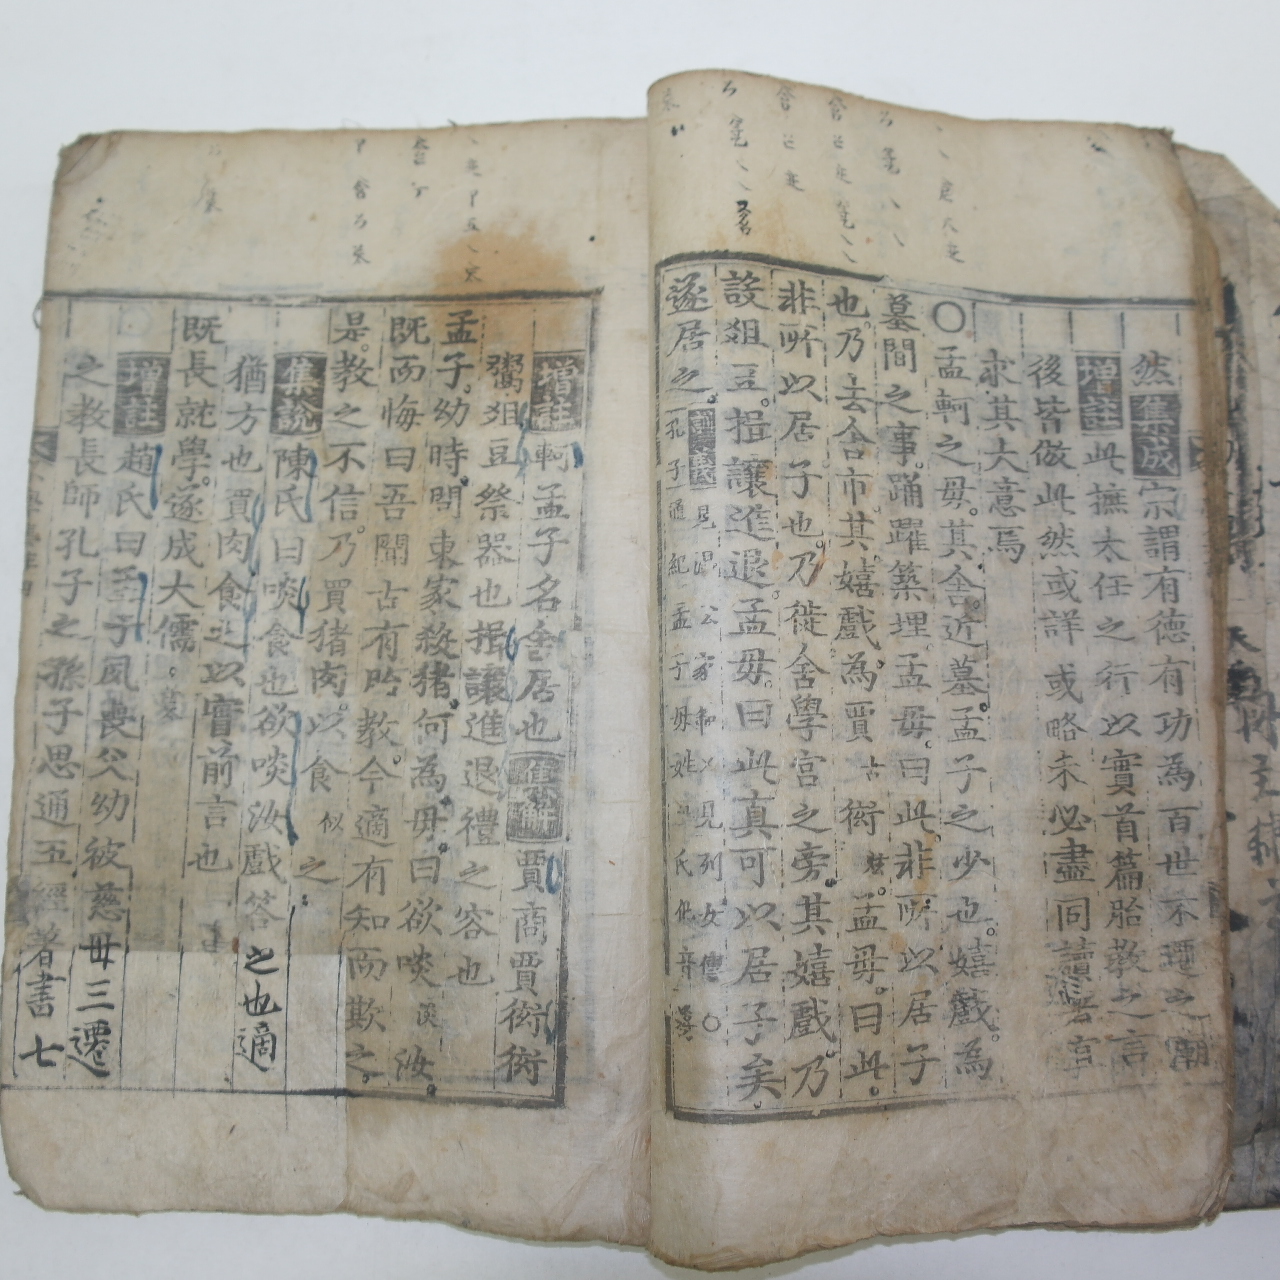 然集成宗謂有德有功為百世不遷之廟
增註此撫太任之行以實首篇胎教之言
後皆倣此然或詳或略未必盡同讀者宜
求其大意焉
○孟軻之母其舍近墓孟子之少也嬉戲為
墓間之事踊躍築埋孟母曰此非所以居子
也乃去舍市其嬉戲為賈古衒孟母曰此
非所以居子也乃徙舍學宮之旁其嬉戲乃
設俎豆揖讓進退孟母曰此真可以居子矣
遂居之
孔子通紀孟子母姓 氏
增註軻孟子名舍居也集解賈商賈衒衒
鬻俎豆祭器也揖讓進退禮之容也
孟子幼時問東家殺猪何為母曰欲啖汝
既而悔曰吾聞古有胎教今適有知而欺之
是教之不信乃買猪肉以食似之
集說陳氏曰啖食也欲啖汝戲答之也適
猶方也買肉食之以實前言也
既長就學遂成大儒
增註趙氏曰孟子夙喪父幼彼慈毋三遷
之教長師孔子之孫子思通五經著書七